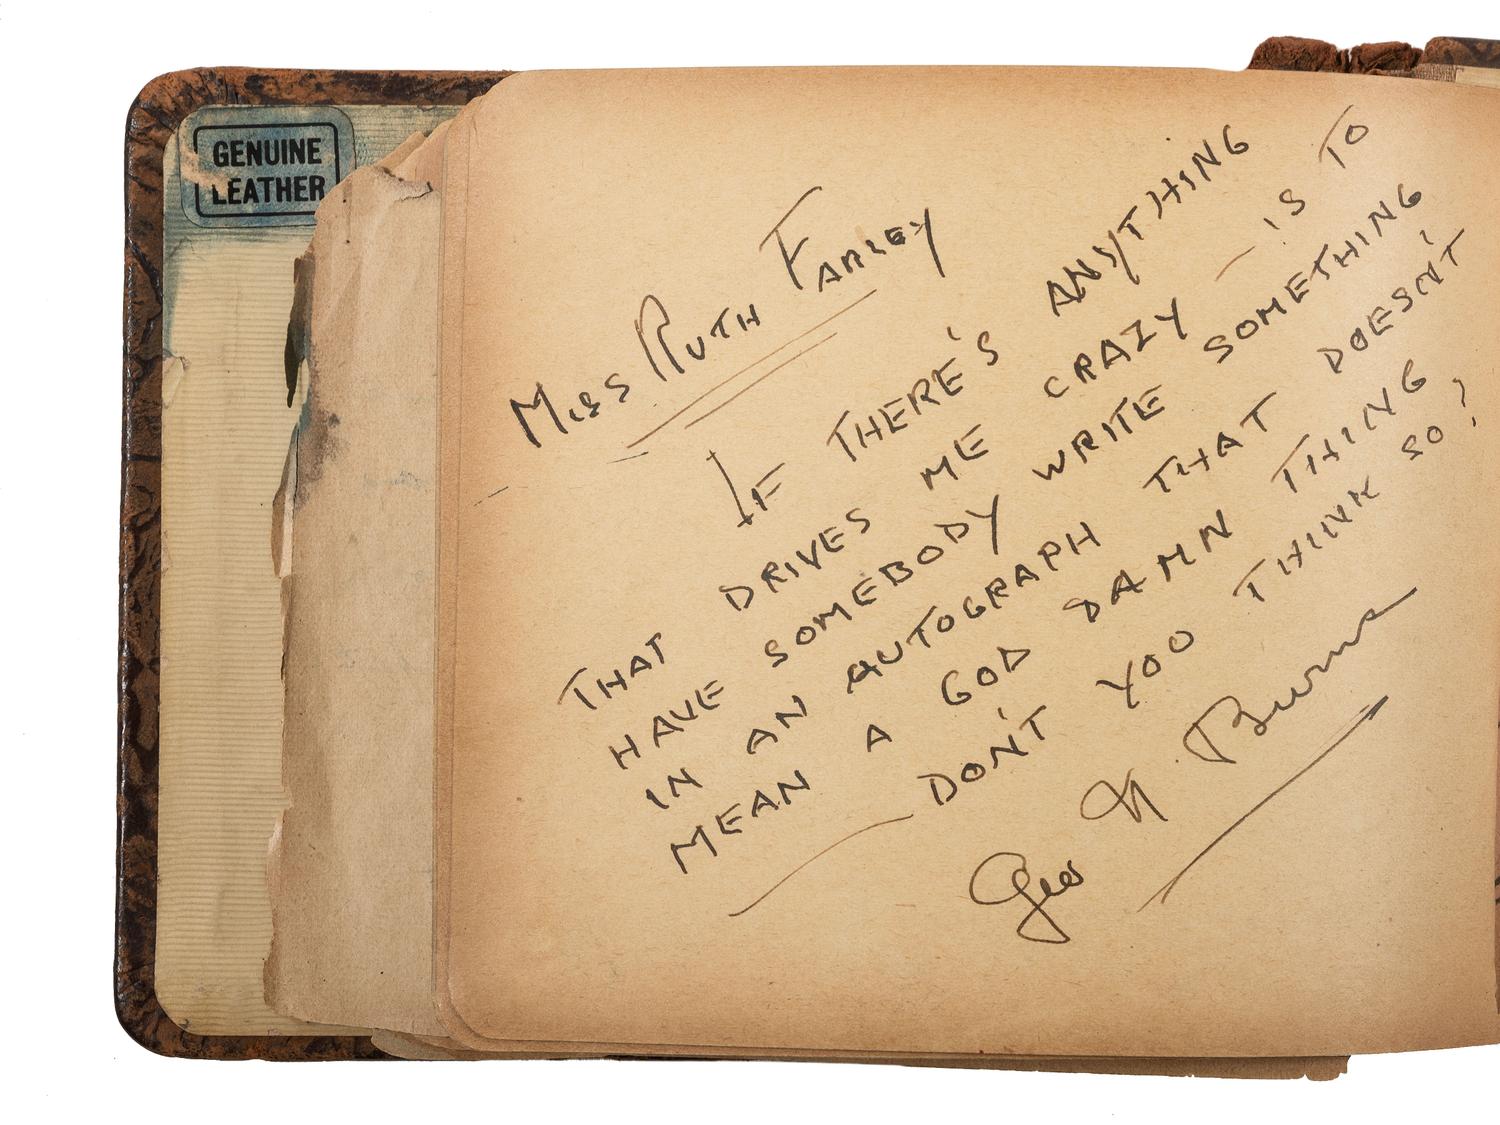 GENUINE
LEATHER
MISS RUTH FARLEY
IF THERE'S ANYTHING
THAT DRIVES ME CRAZY — IS TO
HAVE SOMEBODY WRITE SOMETHING
IN AN AUTOGRAPH THAT DOESN'T
MEAN A GOD DAMN THING
— DON'T YOU THINK SO?
Geo N. Burns